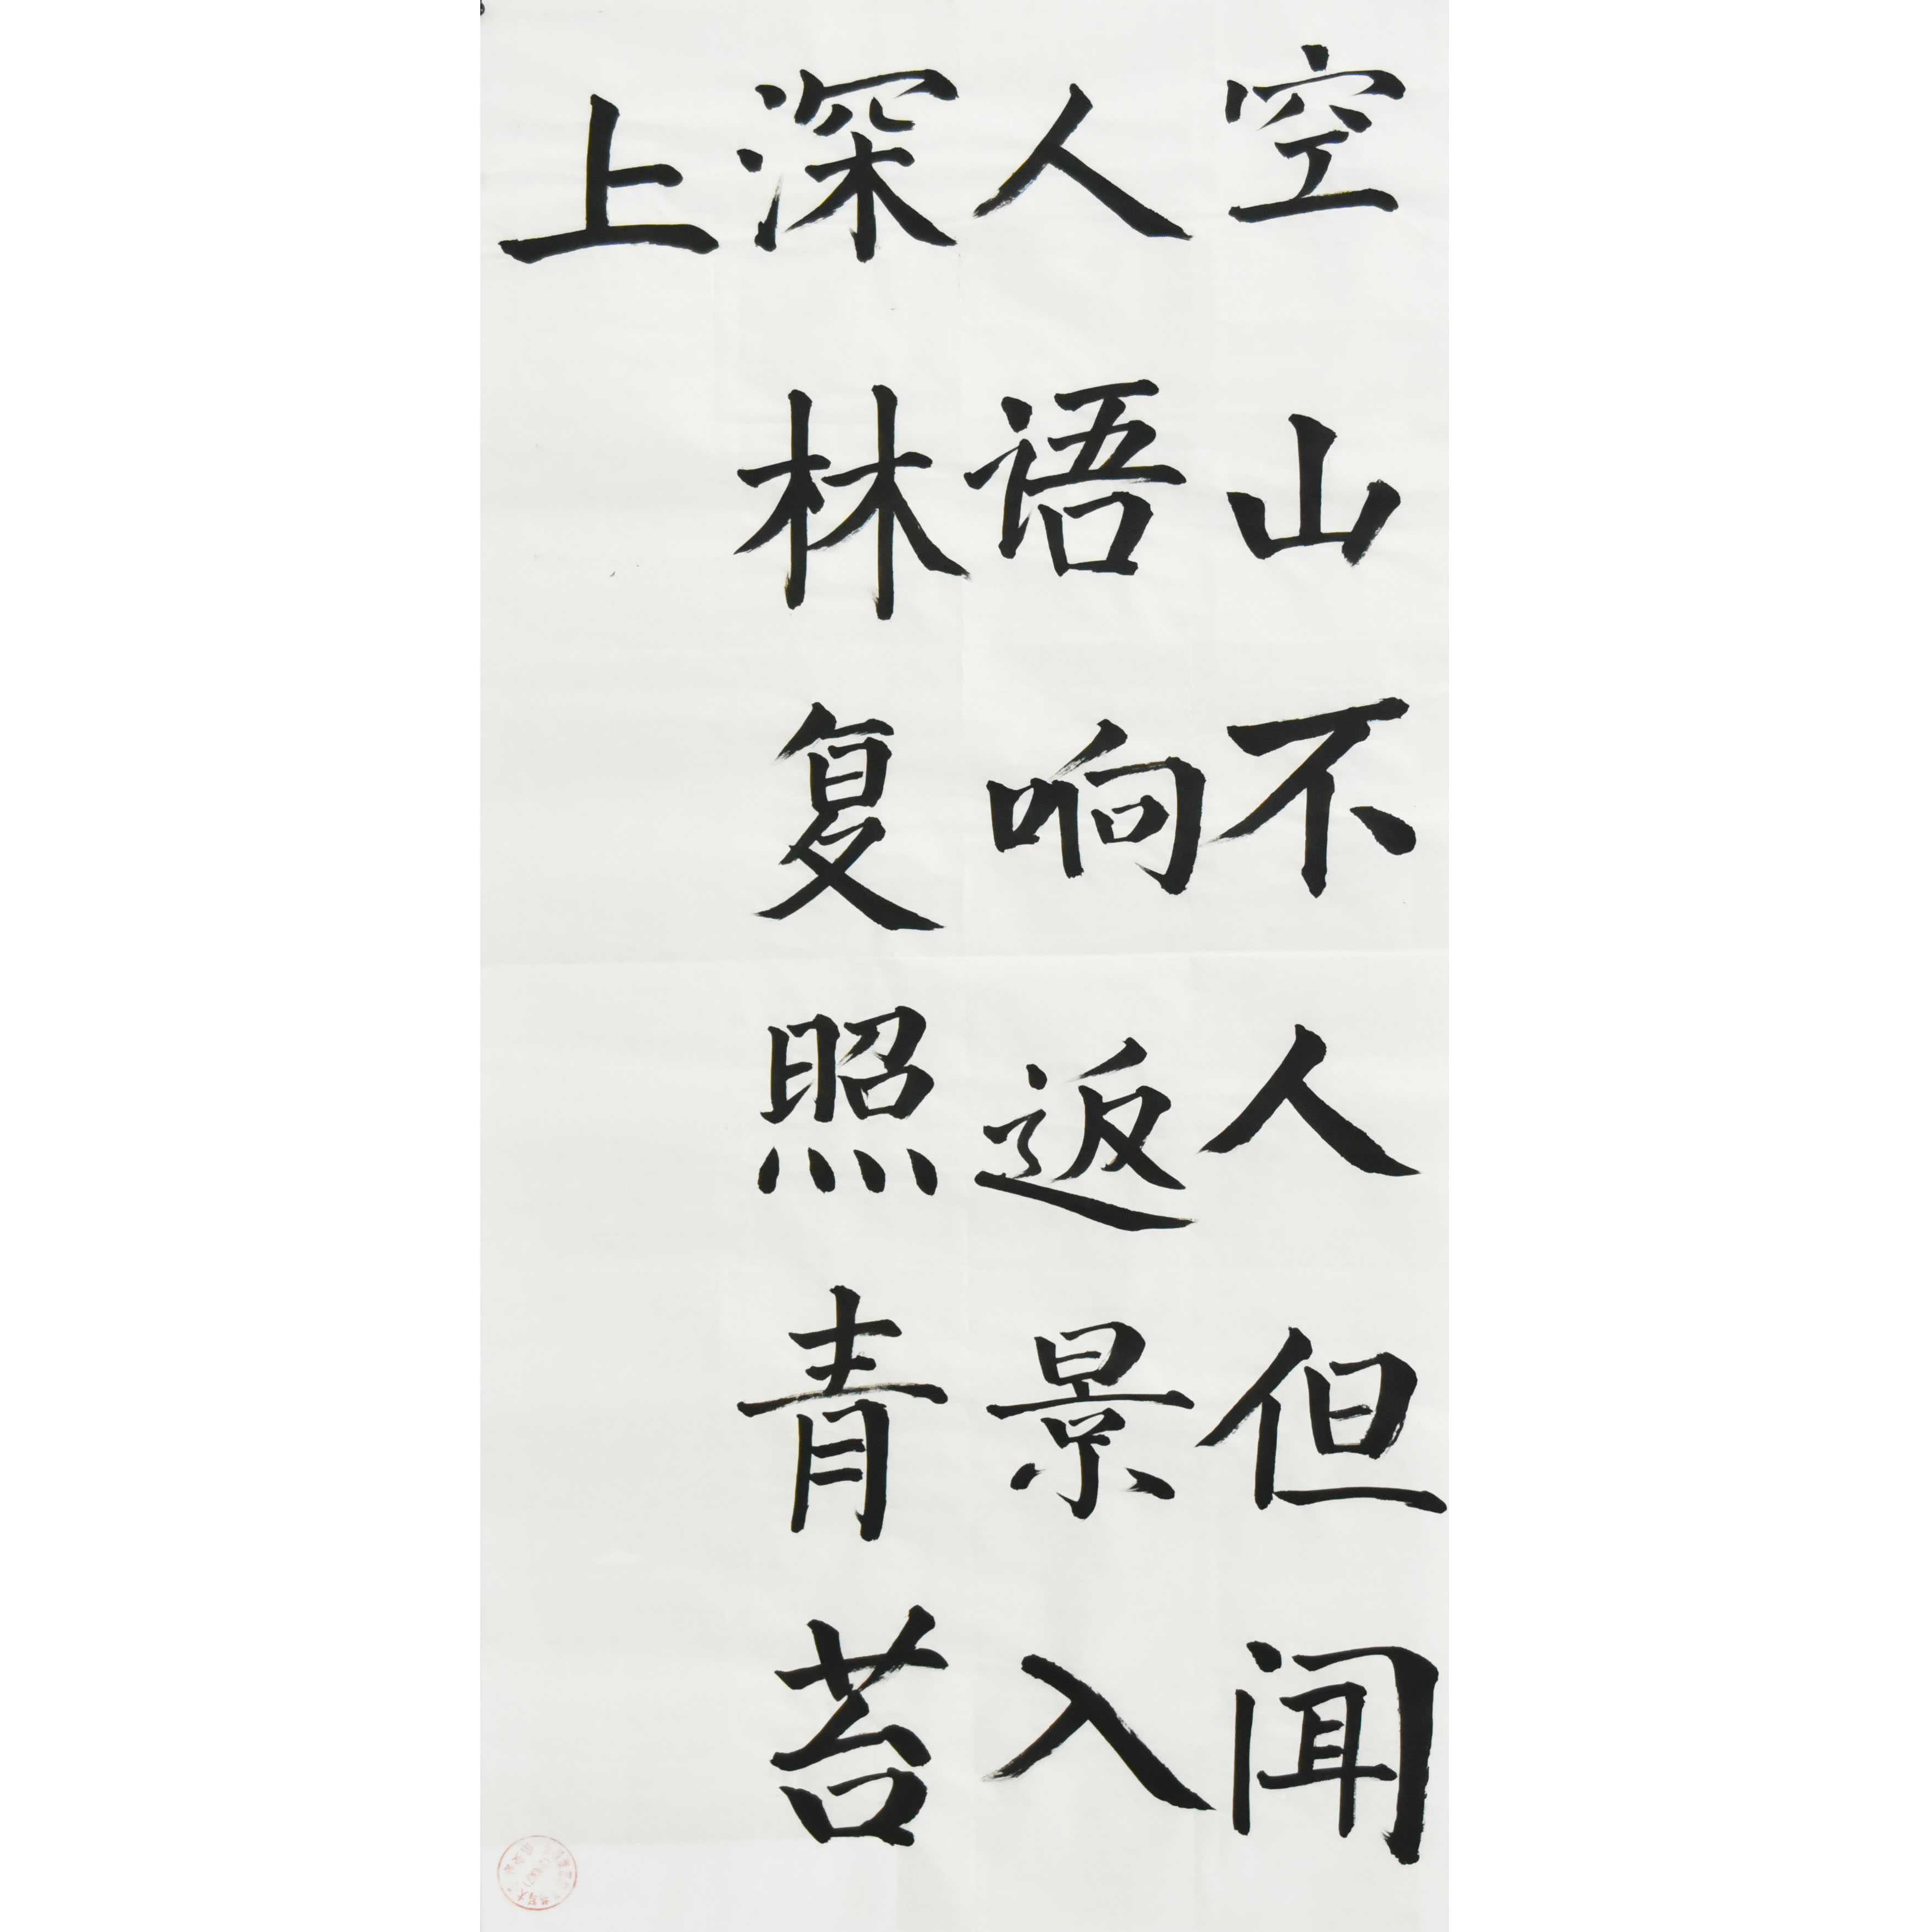 空山不人但闻
人语响返景入
深林复照青苔
上